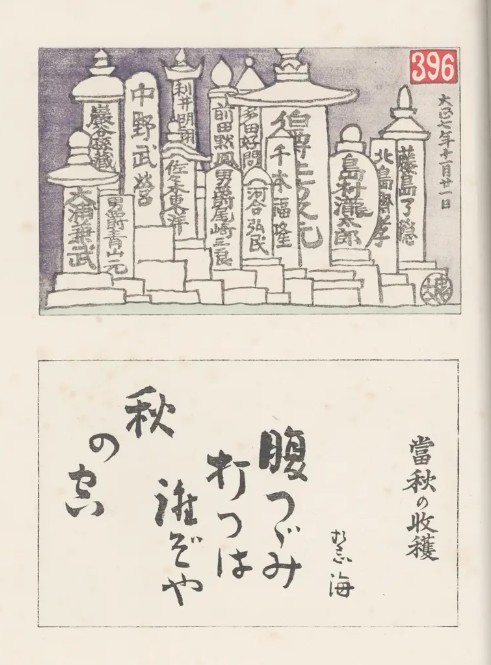 396
大正七年十一月廿一日
藤島了穏
島村瀧太郎
伯爵土方久元
千本福隆
多田好問
河合弘民
前田黙鳳
男爵尾崎三良
利井明朗
佐々木東洋
中野武営
巖谷孫藏
男爵青山元
大浦兼武
當秋の收穫
海
腹つゞみ
打つは
誰ぞや
秋
の